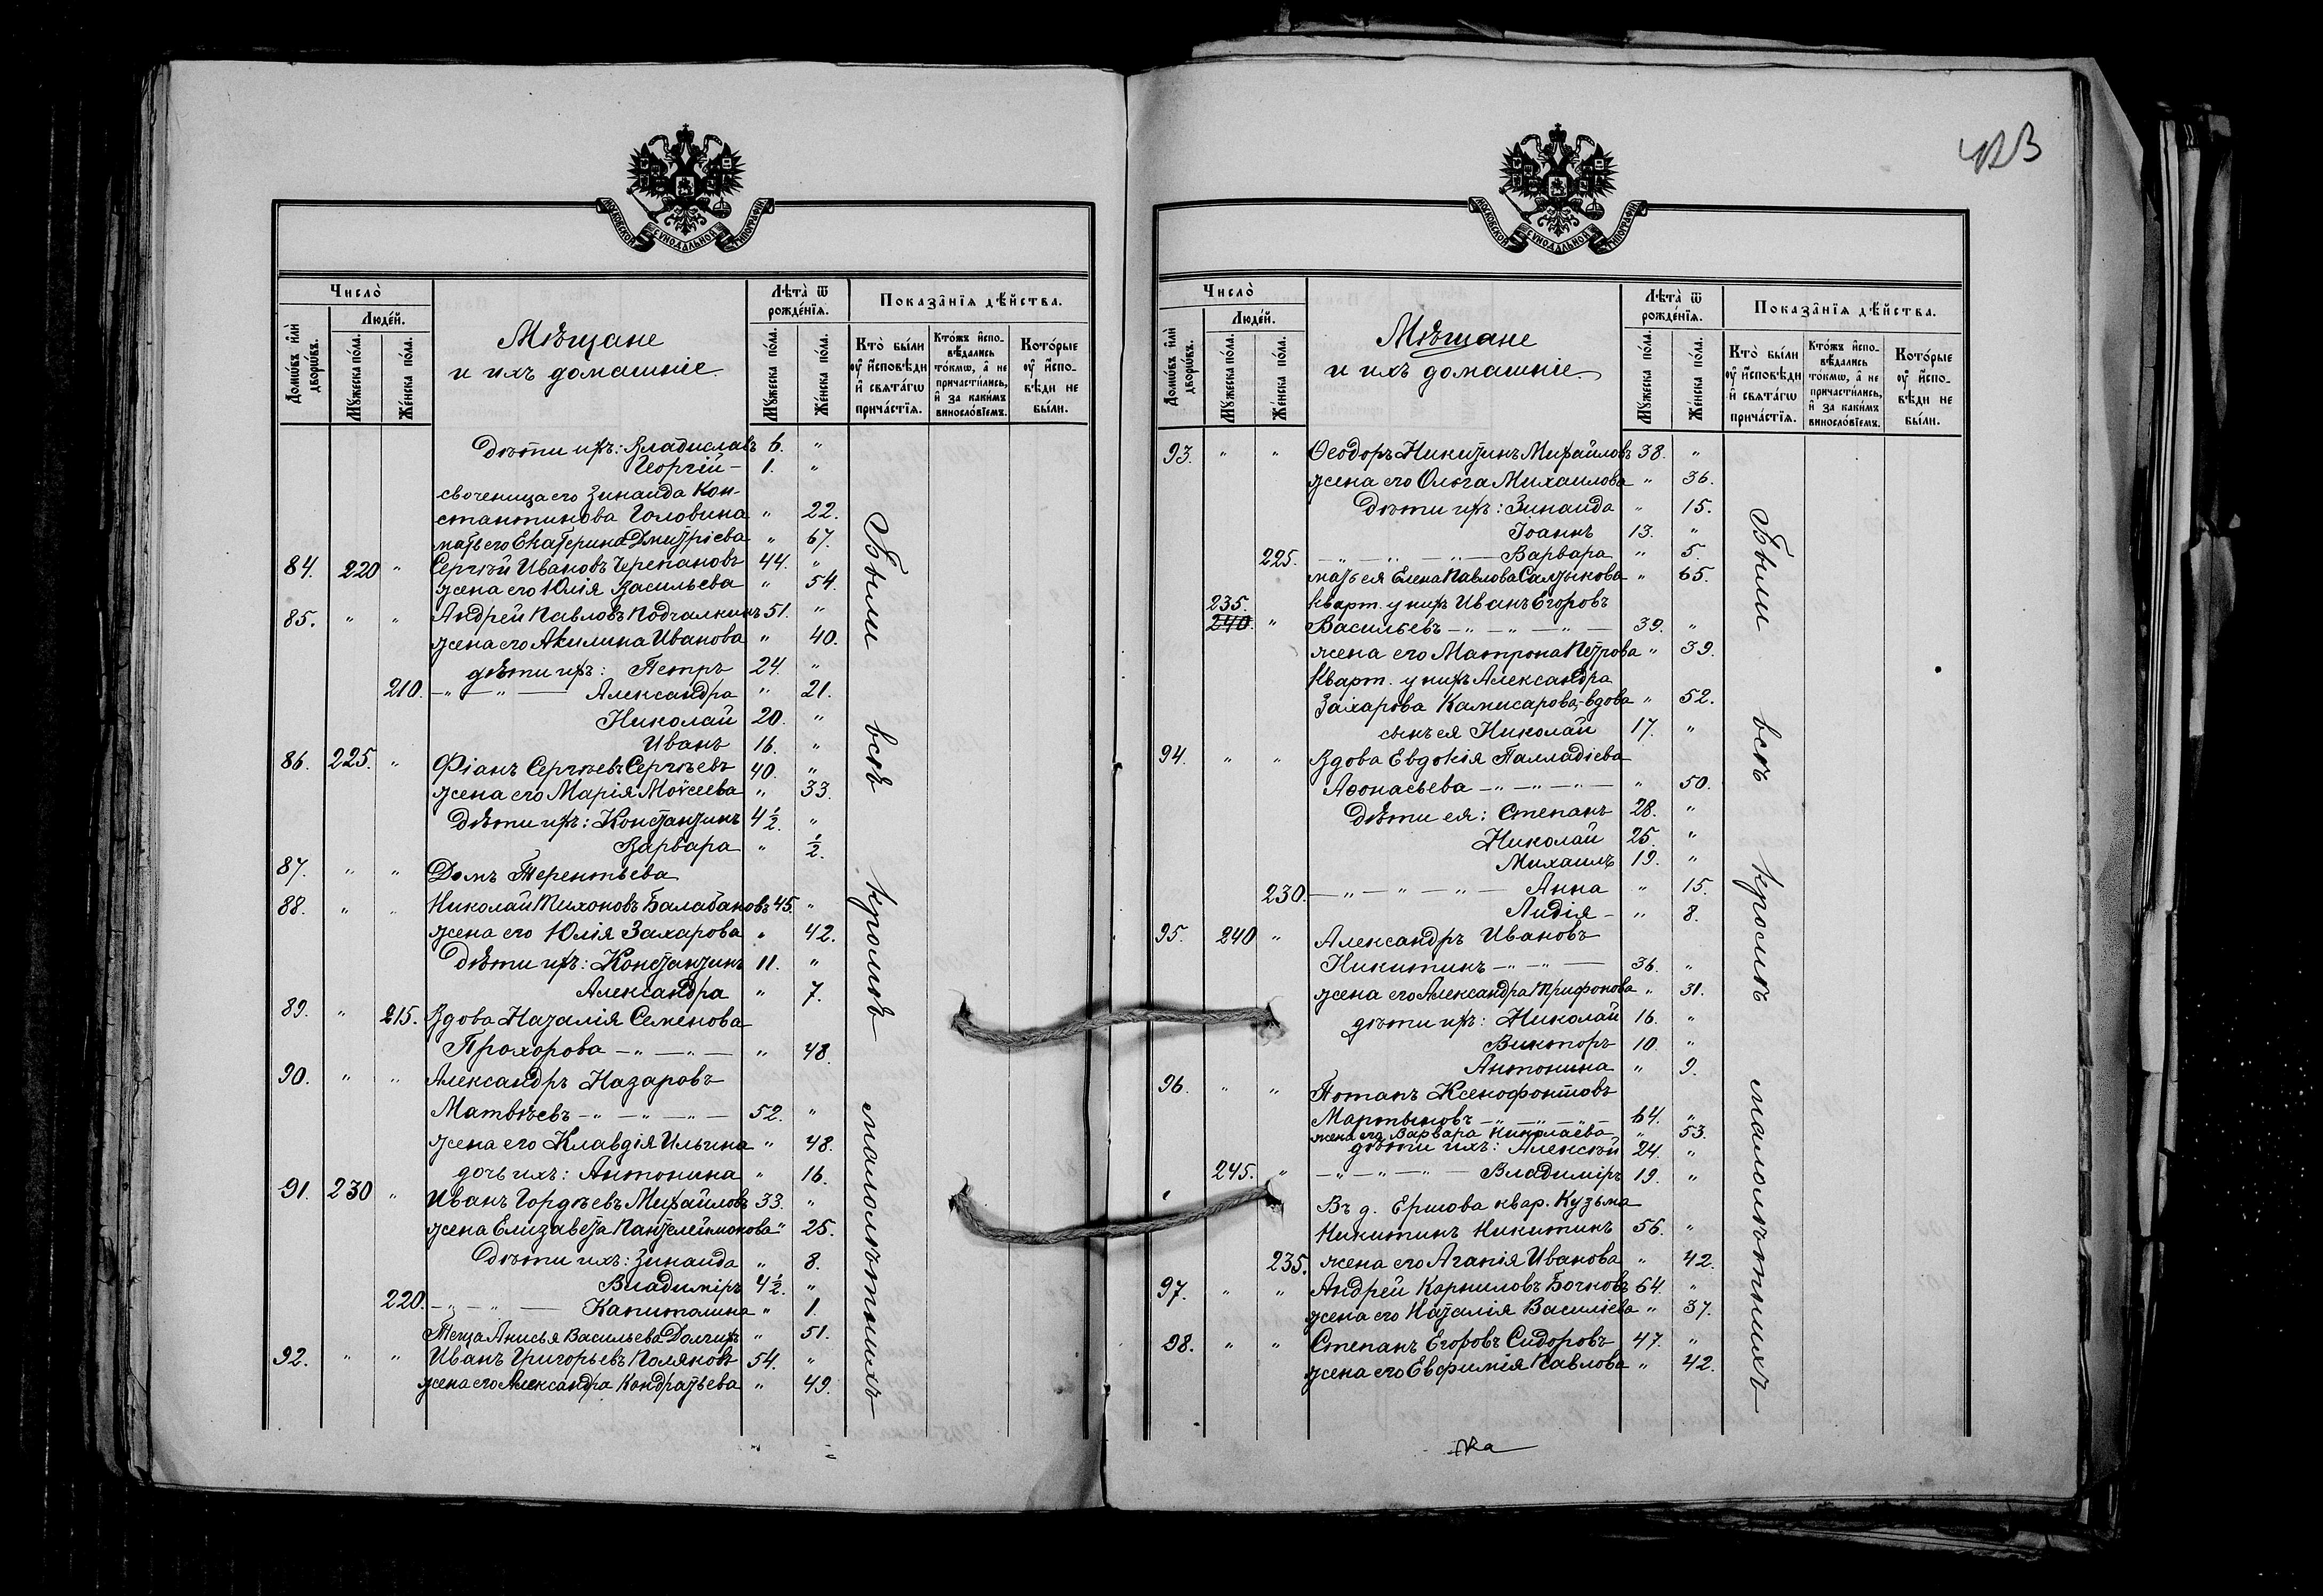 МОСКОВСКОЙ СѴНОДАЛЬНОЙ ТИПОГРАФІИ
Число̀
Людей.
Домѡвъ и҆лѝ дворѡвъ.
Мꙋжеска по́ла.
Же́нска по́ла.
Мѣщане
и ихъ домашніе.
Лѣта̀ ѿ рожде́нїѧ.
Мꙋжеска по́ла.
Же́нска по́ла.
Показа̂нїѧ дѣ́йства.
Кто̀ бы́ли ᲂу҆ и҆сповѣди и҆ свѧта́гѡ прича́стїѧ.
Кто́жъ и҆спо-
вѣ́дались
то́кмѡ, а҆ не
причасти́лись,
и҆ за каки́мъ
винослóвїемъ.
Кото́рые
ᲂу҆ и҆спо-
вѣди не
бы́ли.
Дѣти ихъ: Владиславъ 6. "
Георгій - 1. "
своченица его Зинаида Кон-
стантинова Головина " 22.
мать его Екатерина Дмитріева " 67.
84. 220 " Сергѣй Ивановъ Черепановъ 44. "
жена его Юлія Васильева " 54.
85. " " Андрей Павловъ Подчалкинъ 51. "
жена его Акилина Иванова " 40.
дѣти ихъ: Петръ 24. "
210. - " - " - Александра " 21.
Николай 20. "
Иванъ 16. "
86. 225. " Фіанъ Сергѣевъ Сергѣевъ 40. "
жена его Марія Моѵсеева " 33.
Дѣти ихъ: Константинъ 4½. "
Варвара " ½.
87. " " Домъ Терентьева
88. " " Николай Тихоновъ Балабановъ 45. "
жена его Юлія Захарова " 42.
Дѣти ихъ: Константинъ 11. "
Александра " 7.
89. " 215. Вдова Наталія Семенова
Прохорова - " - " - " 48.
90. " " Александръ Назаровъ
Матвѣевъ - " - " - " - 52. "
жена его Клавдія Ильина " 48.
дочь ихъ: Антонина " 16.
91. 230 " Иванъ Гордѣевъ Михайловъ 33. "
жена Елизавета Пантелеймонова " 25.
Дѣти ихъ: Зинаида " 8.
Владиміръ 4½. "
220. - " - " - Капитолина " 1.
Теща Анисья Васильева Долгихъ " 51.
92. " " Иванъ Григорьевъ Поляковъ 54. "
жена его Александра Кондратьева " 49.
Были всѣ кромѣ малолѣтнихъ
МОСКОВСКОЙ СѴНОДАЛЬНОЙ ТИПОГРАФІИ
Число̀
Людей.
Домѡвъ и҆лѝ дворѡвъ.
Мꙋжеска по́ла.
Же́нска по́ла.
Мѣщане
и ихъ домашніе.
Лѣта̀ ѿ рожде́нїѧ.
Мꙋжеска по́ла.
Же́нска по́ла.
Показа̂нїѧ дѣ́йства.
Кто̀ бы́ли ᲂу҆ и҆сповѣди и҆ свѧта́гѡ прича́стїѧ.
Кто́жъ и҆спо-
вѣ́дались
то́кмѡ, а҆ не
причасти́лись,
и҆ за каки́мъ
винослóвїемъ.
Кото́рые
ᲂу҆ и҆спо-
вѣди не
бы́ли.
93. " " Ѳеодоръ Никитинъ Михайловъ 38. "
жена его Ольга Михаилова " 36.
Дѣти ихъ: Зинаида " 15.
Іоаннъ 13. "
225. - " - " - " - Варвара " 5.
мать ея Елена Павлова Салтыкова " 65.
235. Кварт. у нихъ Иванъ Егоровъ
240. " Васильевъ - " - " - " - 39. "
жена его Матрона Петрова " 39.
Кварт. у нихъ Александра
Захарова Камисарова, вдова " 52.
сынъ ея Николай 17. "
94. " " Вдова Евдокія Палладіева
Аѳонасьева - " - " - " - " 50.
Дѣти ея: Степанъ 28. "
Николай 25. "
Михаилъ 19. "
230. - " - " - " - Анна " 15.
Лидія - " 8.
95. 240 " Александръ Ивановъ
Никитинъ - " - " - 36. "
жена его Александра Трифонова " 31.
дѣти ихъ: Николай 16. "
Викторъ 10. "
Антонина " 9.
96. " " Потапъ Ксенофонтовъ
Мартыновъ - " - " - " - 64. "
жена его Варвара Николаева " 53.
дѣти ихъ: Алексѣй 24. "
245. " - " - " - " - Владиміръ 19. "
Въ д. Ершова квар. Кузьма
Никитинъ Никитинъ 56. "
235. жена его Агапія Иванова " 42.
97. " " Андрей Корниловъ Бочковъ 64. "
жена его Наталія Василіева " 37.
98. " " Степанъ Егоровъ Сидоровъ 47. "
жена его Евфимія Павлова " 42.
Были всѣ кромѣ малолѣтнихъ